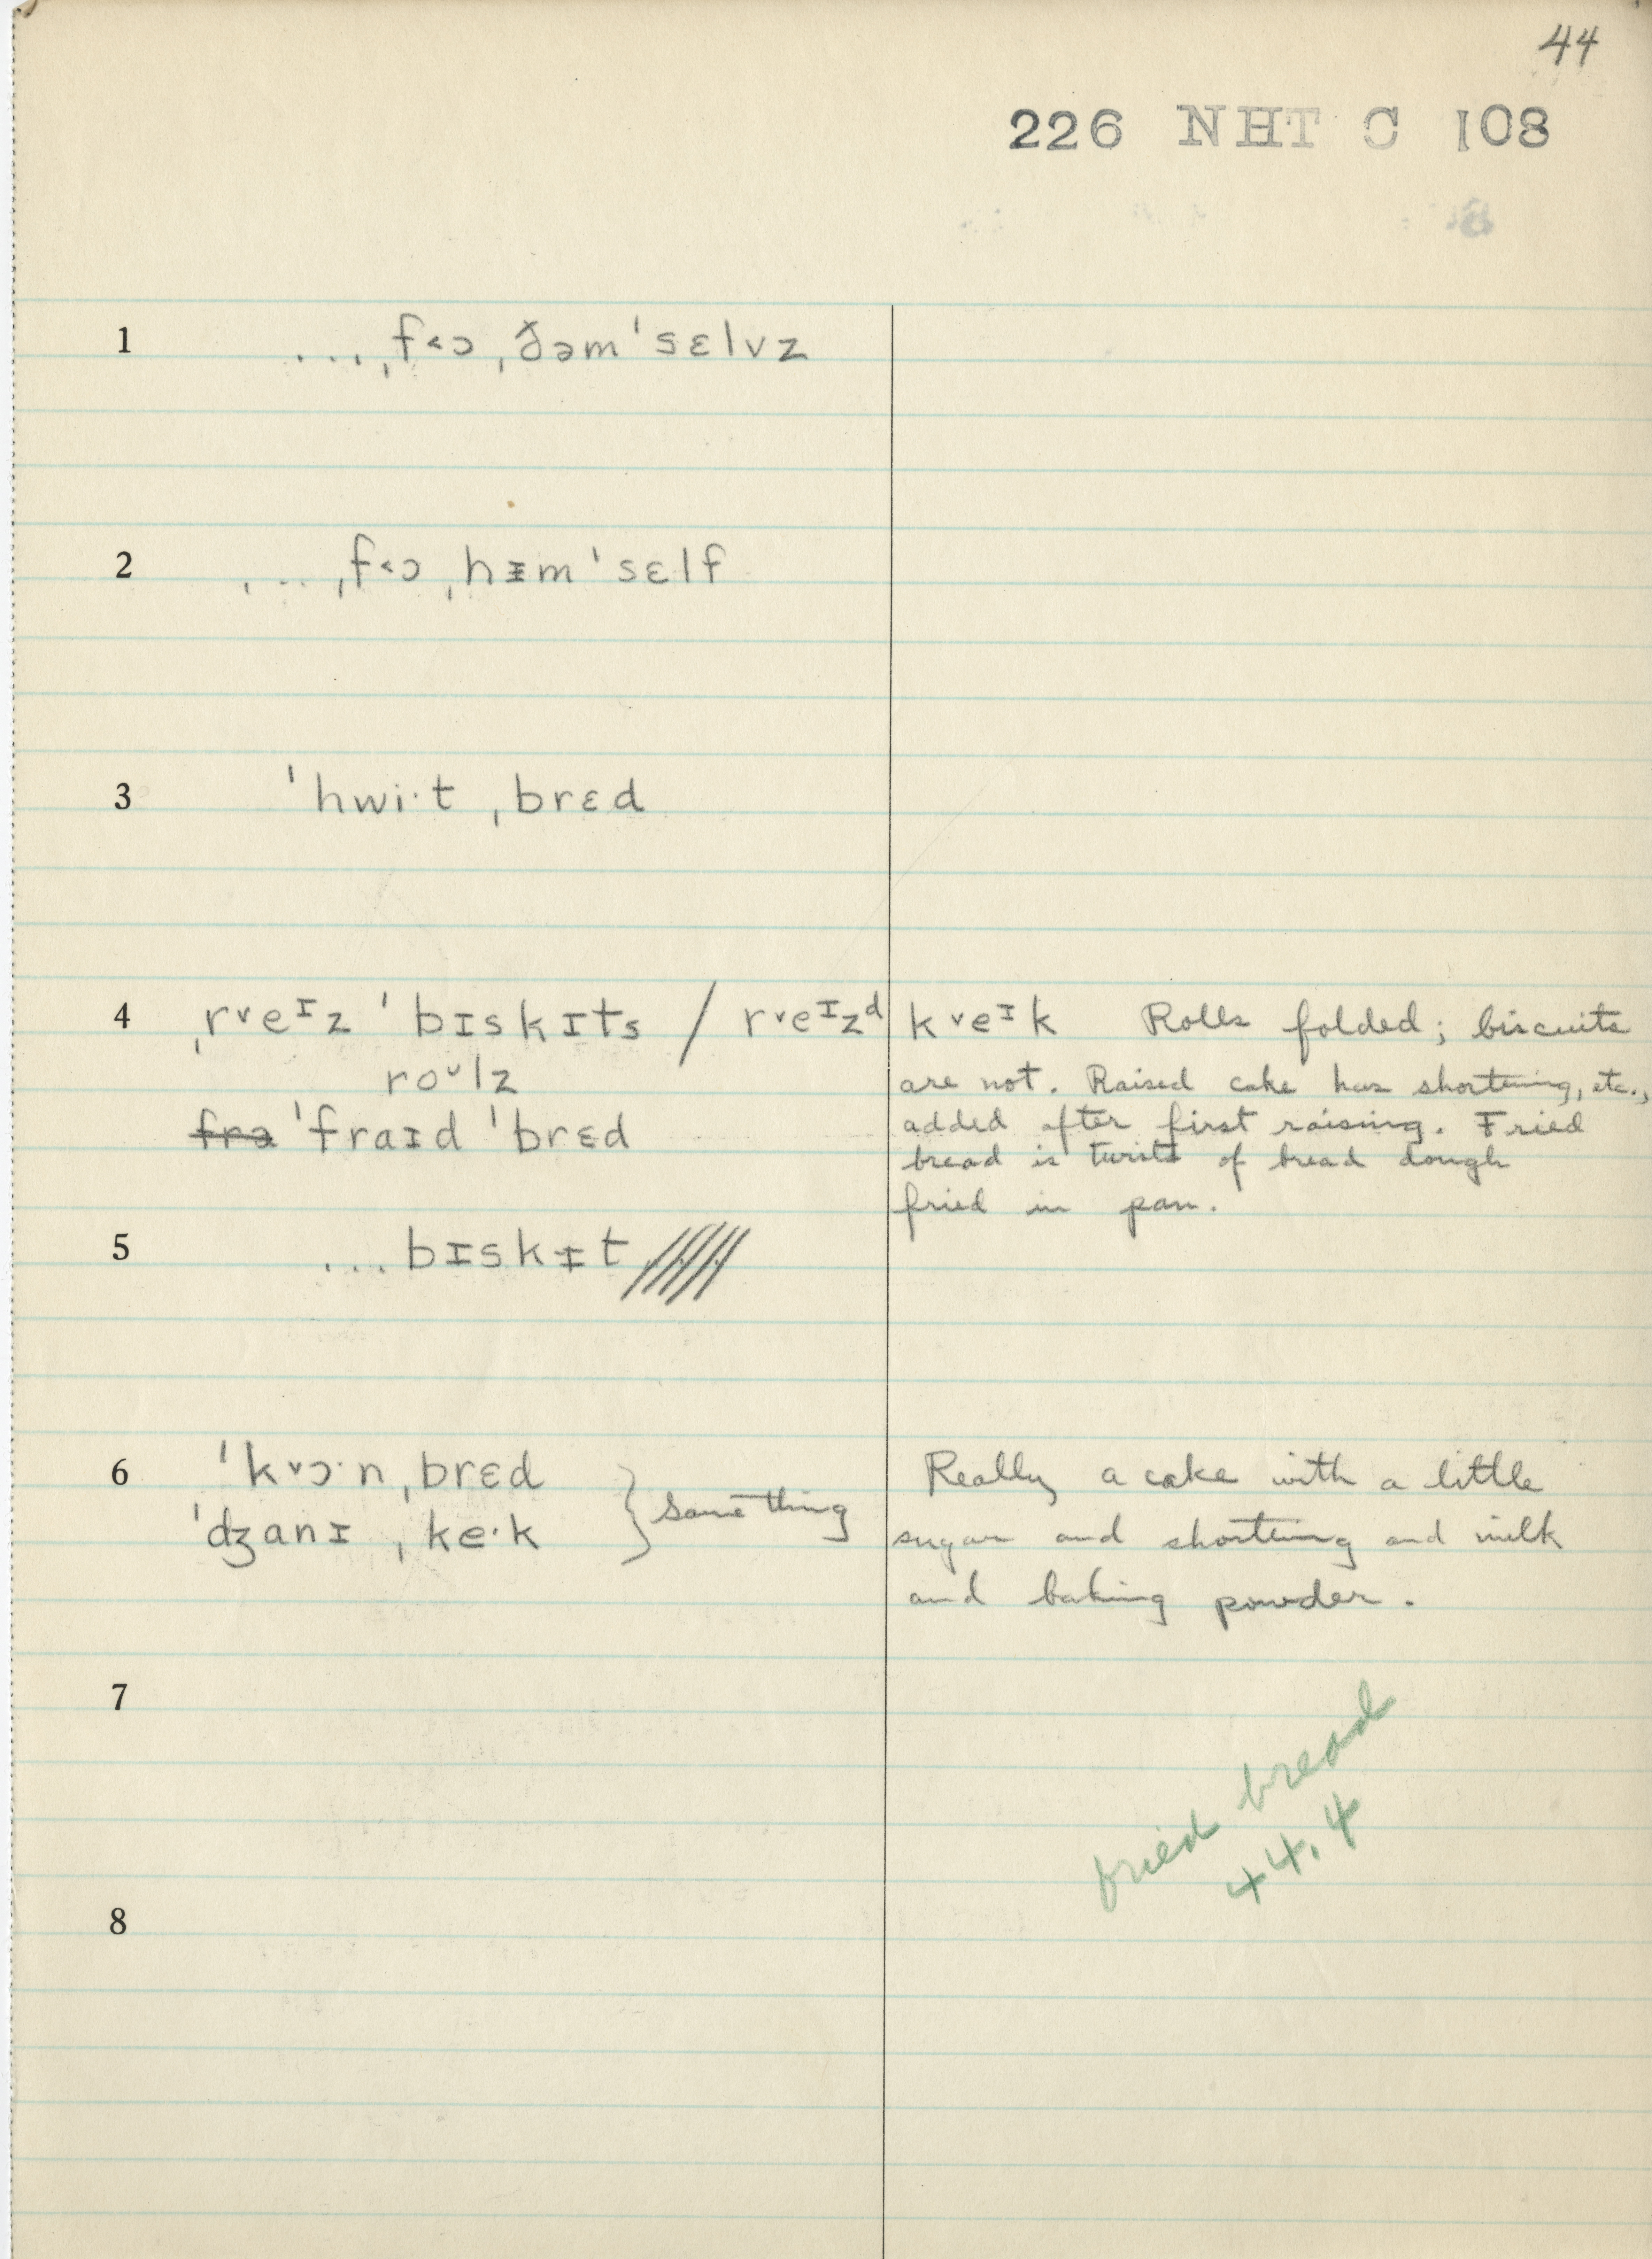 44
226 NHT C 108
1 ...ˌf˂ɔ ˌðəm ˈsɛlvz
2 ...ˌf˂ɔ ˌhᵻm ˈsɛlf
3 ˈhwi·t ˌbrɛd
4 ˌr˅eᶦz ˈbɪskɪts / r˅eᶦzᵈ k˅eᶦk Rolls folded; biscuits
roᵘlz are not. Raised cake has shortening, etc.,
frə ˈfraɪd ˈbrɛd added after first raising. Fried
bread is twists of bread dough
fried in pan.
5 ...bɪskᵻt
6 ˈk˅ɔ·n ˌbrɛd } same thing Really a cake with a little
ˈdʒanɪ ˌke·k sugar and shortening and milk
and baking powder.
7
fried bread
44.4
8